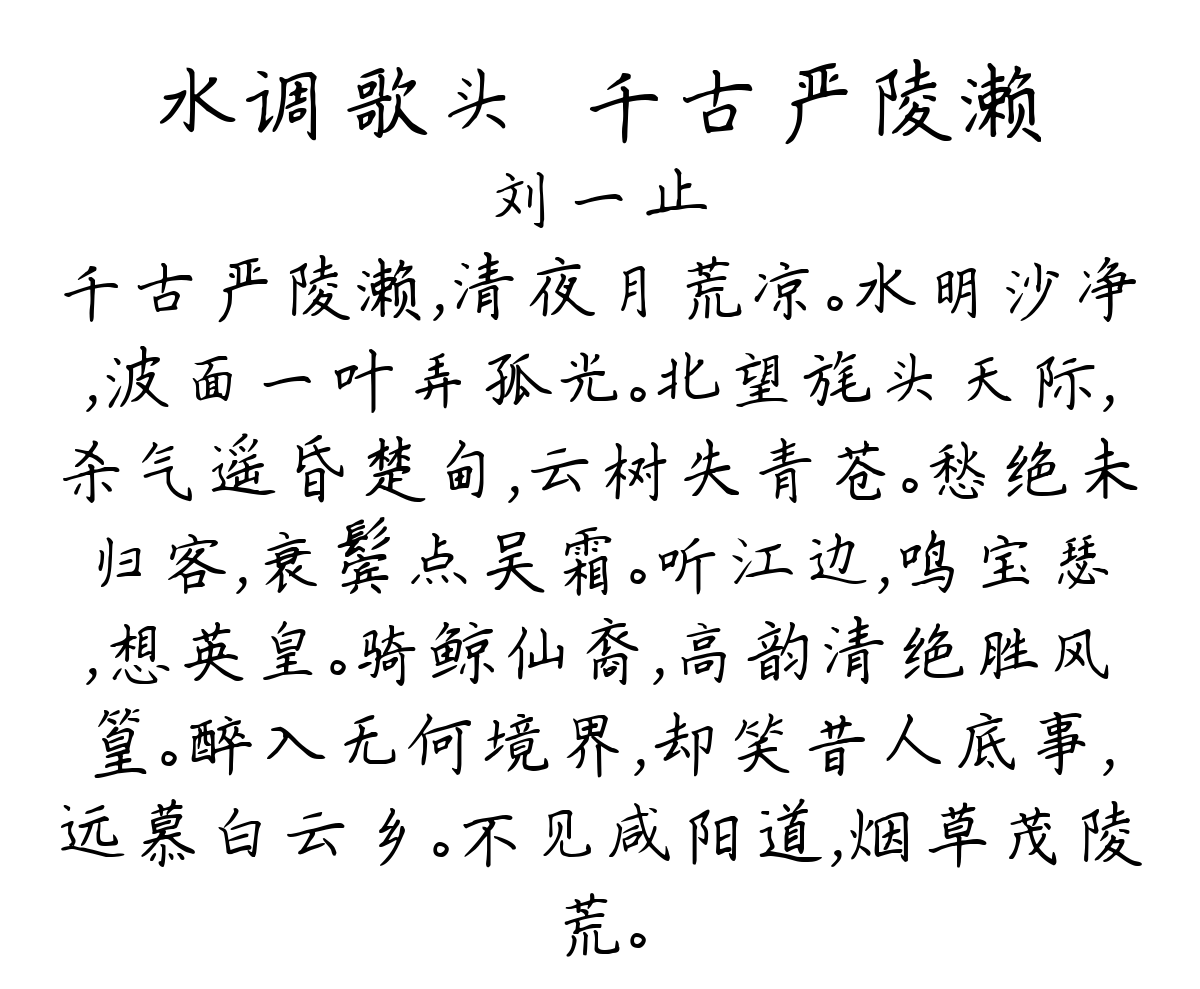 水调歌头 千古严陵濑
刘一止
千古严陵濑,清夜月荒凉。水明沙净
,波面一叶弄孤光。北望旄头天际,
杀气遥昏楚甸,云树失青苍。愁绝未
归客,衰鬓点吴霜。听江边,鸣宝瑟
,想英皇。骑鲸仙裔,高韵清绝胜风
篁。醉入无何境界,却笑昔人底事,
远慕白云乡。不见咸阳道,烟草茂陵
荒。